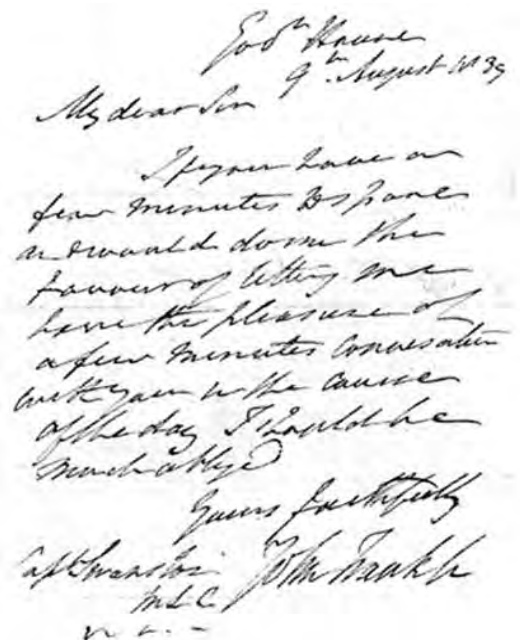 Govt House
9th August 1839
My dear Sir
If you have a
few minutes to spare
and would do me the
favour of letting me
have the pleasure of
a few minutes conversation
with you in the course
of the day I should be
much obliged
Yours faithfully
John Franklin
Capt Swanston
MLC